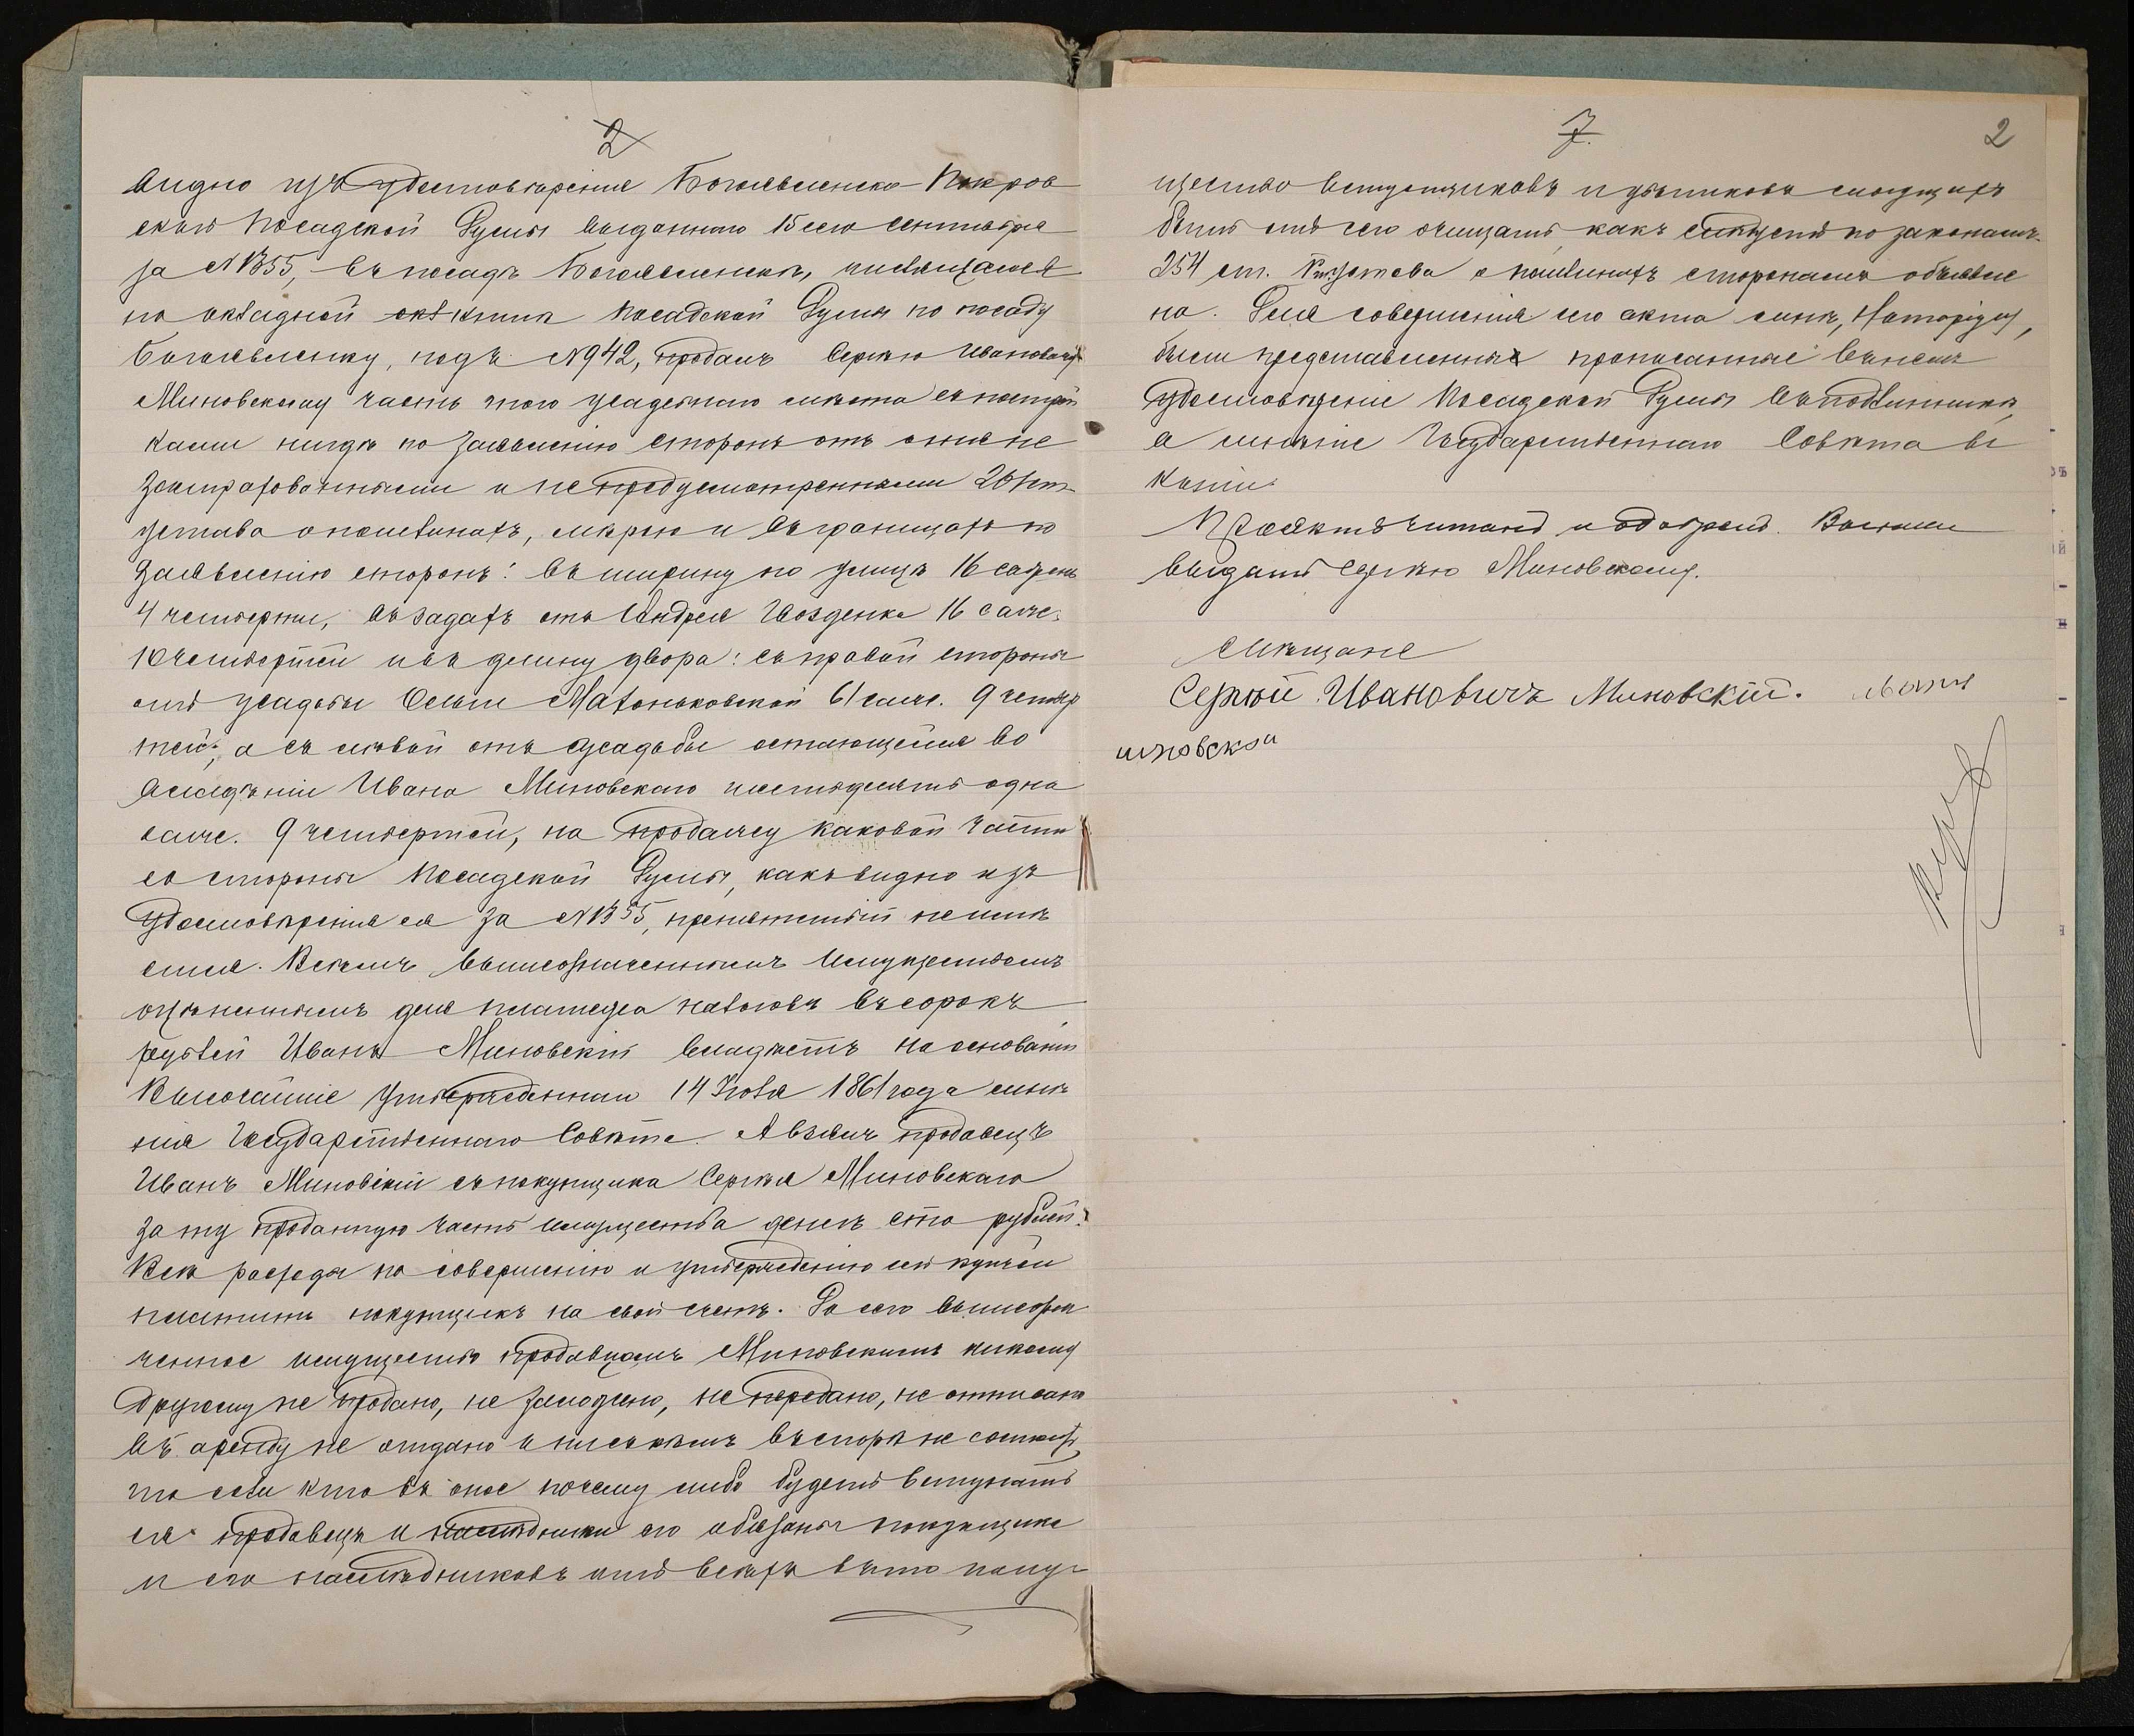 2
видно изъ удостовѣренія Богоявленско-Покров
ской Посадской Думы выданнаго 15 сего Сентября
за № 1355, въ посадѣ Богоявленскѣ, числящагося
по окладной книгѣ Посадской Думы по посаду
Богоявленску, подъ № 942, продалъ Сергѣю Ивановичу
Миновскому часть того усадебнаго мѣста съ построй
ками нигдѣ по заявленію сторонъ отъ огня не
застрахованными и не предусмотренными 264 ст.
устава о пошлинахъ, мѣрою и въ границахъ по
заявленію сторонъ: въ ширину по улицѣ 16 сажень
4 четверти, въ задахъ отъ Андрея Гвозденка 16 саже.
10 четвертей и въ длину двора: съ правой стороны
отъ усадьбы Ольги Матоньковской 61 саже. 9 четвер
тей; а съ лѣвой отъ усадьбы остающейся во
владѣніи Ивана Миновскаго шестьдесятъ одна
саже. 9 четвертей, на продажу каковой части
со стороны Посадской Думы, какъ видно изъ
удостовѣренія ея за № 1355, препятствій не имѣ
ется. Всѣмъ вышеозначеннымъ имуществомъ
оцѣненнымъ для платежа налоговъ въ сорокъ
рублей Иванъ Миновскій владѣетъ на основаніи
Высочайше утвержденнаго 14 Іюля 1861 года мнѣ
нія Государственнаго Совѣта. А взялъ продавецъ
Иванъ Миновскій съ покупщика Сергѣя Миновскаго
за ту проданную часть имущества денегъ сто рублей.
Всѣ расходы по совершенію и утвержденію сей купчей
платитъ покупщикъ на свой счетъ. До сего вышеозна
ченное имущество продавцомъ Миновскимъ никому
другому не продано, не заложено, не передано, не отписано
въ аренду не отдано и ни съ кѣмъ въ спорѣ не состоитъ,
то если кто въ оное почему либо будетъ вступать
ся продавецъ и наслѣдники его обязаны покупщика
и его наслѣдниковъ отъ всѣхъ въ то иму-
7.
2
щество вступщиковъ и убытковъ могущихъ
быть отъ сего очищать какъ слѣдуетъ по законамъ.
254 ст. Устава о пошлинахъ сторонамъ объявле
на. Для совершенія сего акта мнѣ, Нотаріусу,
были представлены прописанные въ немъ
удостовѣреніе Посадской Думы въ подлинникѣ,
а мнѣніе Государственнаго Совѣта въ
копіи
Проектъ читанъ и одобренъ. Выпись
выдать Сергѣю Миновскому.
Мѣщане
Сергѣй Ивановичъ Миновскій.
иновской